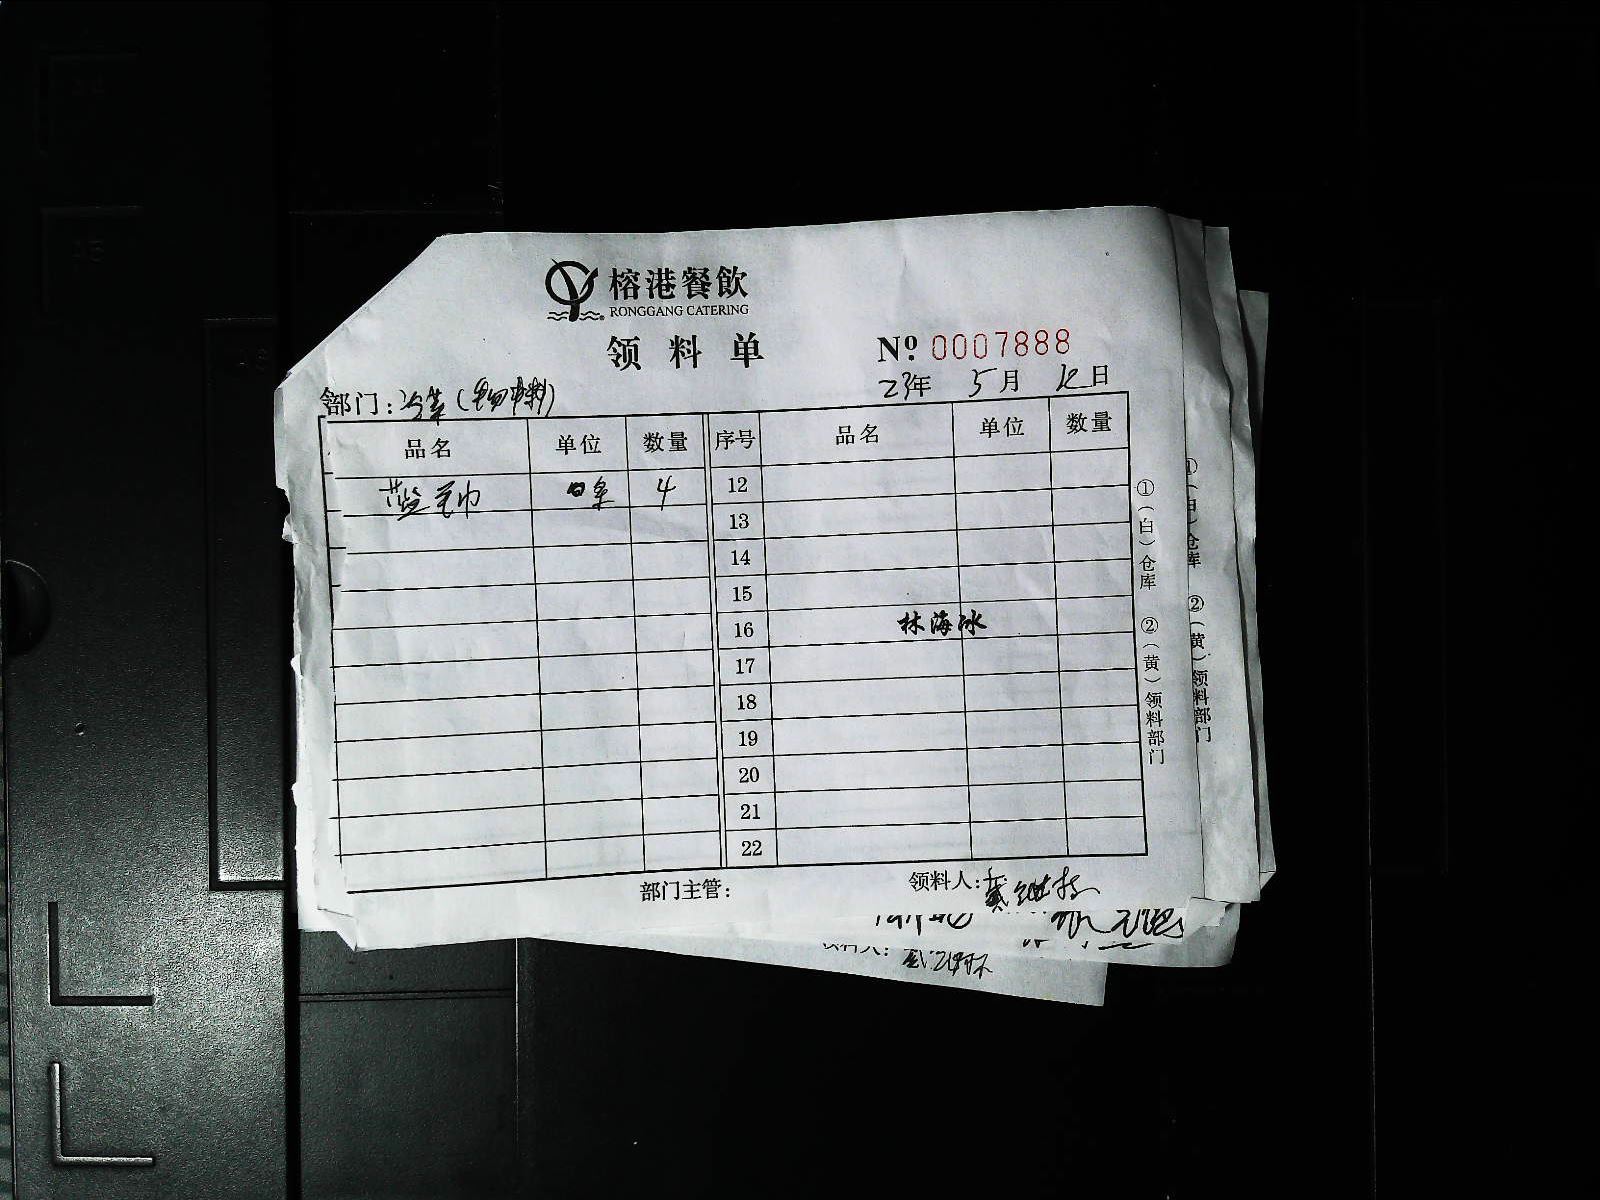 榕港餐飲
RONGGANG CATERING
领料单
No. 0007888
部门:冷菜(物料)
23年 5月 12日
品名 单位 数量 序号 品名 单位 数量
蓝毛巾 4 12
13
14
15
16 林海冰
17
18
19
20
21
22
部门主管:
领料人:
①(白)仓库 ②(黄)领料部门
①(白)仓库 ②(黄)领料部门